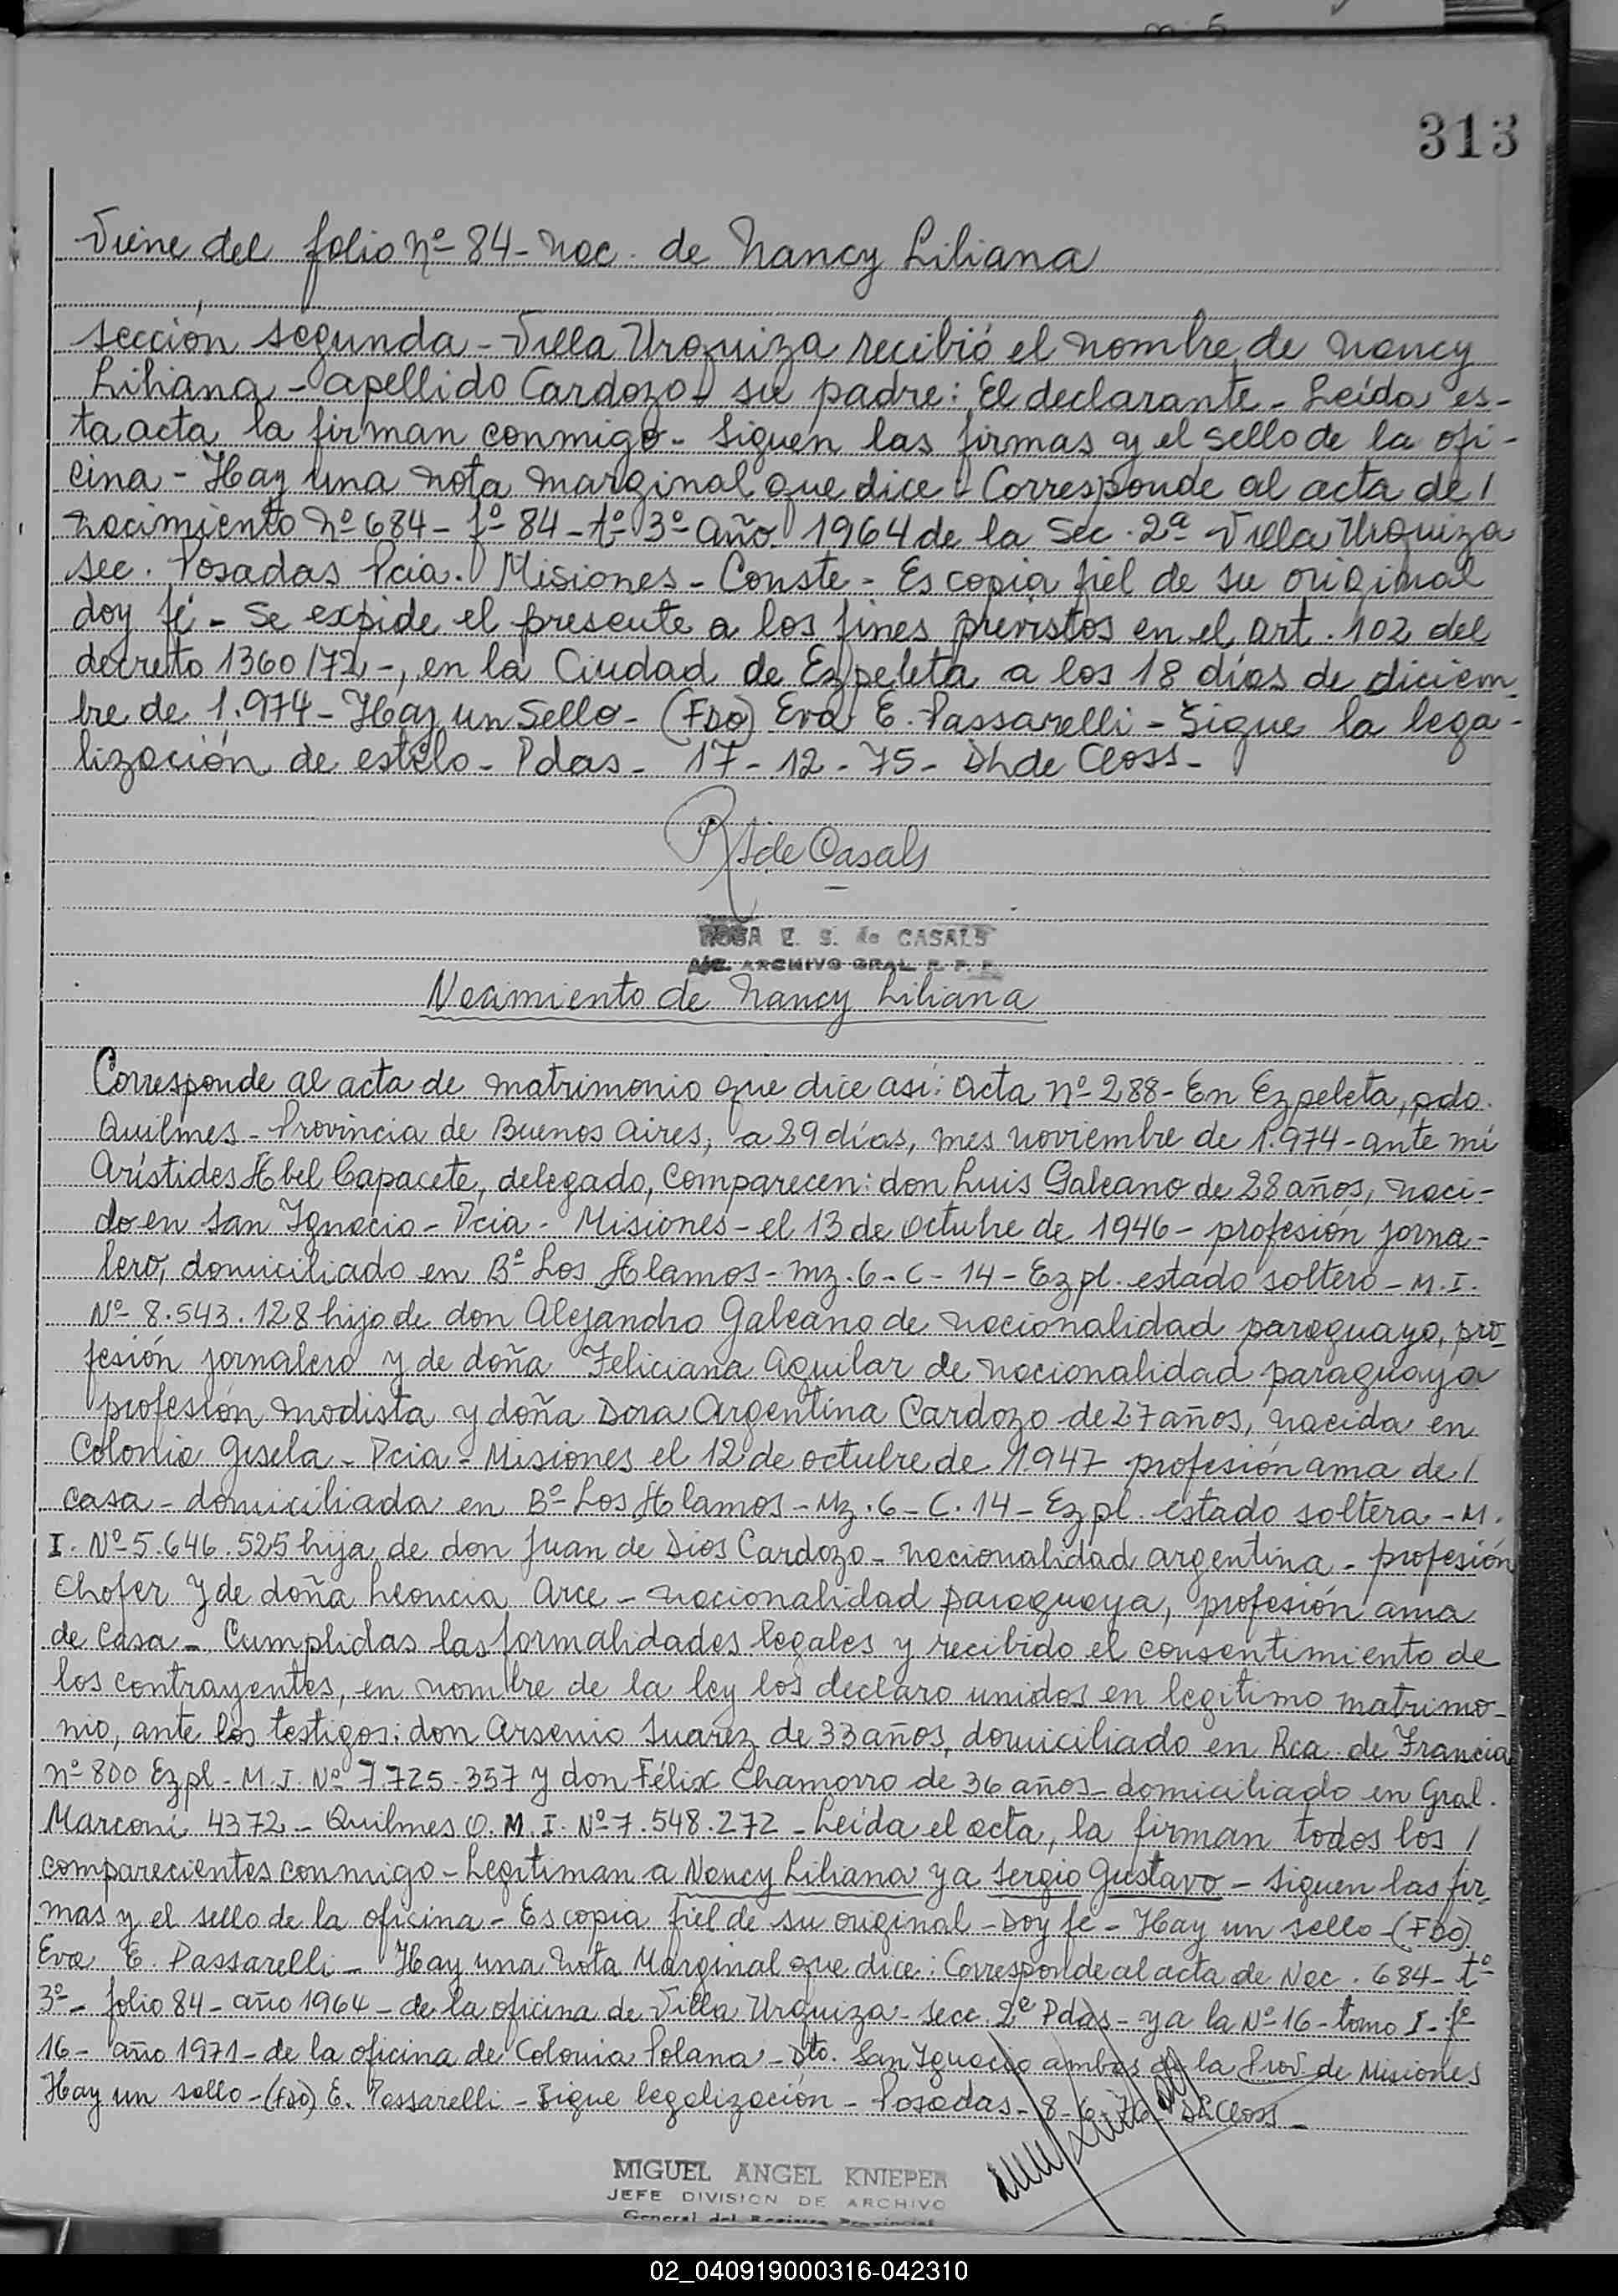 313
Viene del folio Nº 84 - Nac. de Nancy Liliana
sección segunda - Villa Urquiza recibió el nombre de Nancy
Liliana - apellido Cardozo - su padre: El declarante - Leída es-
ta acta la firman conmigo - Siguen las firmas y el sello de la ofi-
cina - Hay una nota marginal que dice: Corresponde al acta de /
nacimiento Nº 684 - fº 84 - tº 3º año 1964 de la Sec. 2ª Villa Urquiza
sec. Posadas Pcia. Misiones - Conste - Es copia fiel de su original
doy fé - Se expide el presente a los fines previstos en el art. 102 del
decreto 1360/72 -, en la Ciudad de Ezpeleta a los 18 días de diciem-
bre de 1.974 - Hay un Sello - (FDO) Eva E. Passarelli - Sigue la lega-
lización de estilo - Pdas - 17 - 12 - 75 - Dh de Closs -
R S de Casals
ROSA E. S. de CASALS
A/C. ARCHIVO GRAL. R. P. P.
Nacimiento de Nancy Liliana
Corresponde al acta de matrimonio que dice así: Acta Nº 288 - En Ezpeleta, pdo.
Quilmes - Provincia de Buenos Aires, a 29 días, mes noviembre de 1.974 - ante mí
Arístides Abel Capacete, delegado, comparecen: don Luis Galeano de 28 años, naci-
do en San Ignacio - Pcia - Misiones - el 13 de octubre de 1946 - profesión jorna-
lero, domiciliado en Bº Los Alamos - mz. 6 - C - 14 - Ezpl. estado soltero - M. I.
Nº 8.543.128 hijo de don Alejandro Galeano de nacionalidad paraguayo, pro-
fesión jornalero y de doña Feliciana Aguilar de nacionalidad paraguaya
profesión modista y doña Dora Argentina Cardozo de 27 años, nacida en
Colonia Gisela - Pcia - Misiones el 12 de octubre de 1.947 profesión ama de /
casa - domiciliada en Bº Los Alamos - Mz. 6 - C. 14 - Ezpl. estado soltera - M.
I. Nº 5.646.525 hija de don Juan de Dios Cardozo - nacionalidad argentina - profesión
Chofer y de doña Leoncia Arce - nacionalidad paraguaya, profesión ama
de casa - Cumplidas las formalidades legales y recibido el consentimiento de
los contrayentes, en nombre de la ley los declaro unidos en legítimo matrimo-
nio, ante los testigos: don Arsenio Suarez de 33 años, domiciliado en Rca. de Francia
nº 800 Ezpl - M. I. Nº 7.725.357 y don Félix Chamorro de 36 años - domiciliado en Gral.
Marconi 4372 - Quilmes O. M. I. Nº 7.548.272 - Leída el acta, la firman todos los /
comparecientes conmigo - Legitiman a Nancy Liliana y a Sergio Gustavo - siguen las fir-
mas y el sello de la oficina - Es copia fiel de su original - Doy fe - Hay un sello - (FDO)
Eva E. Passarelli - Hay una nota Marginal que dice: Corresponde al acta de Nac. 684 - tº
3º - folio 84 - año 1964 - de la oficina de Villa Urquiza - secc. 2ª Pdas - y a la Nº 16 - tomo I - fº
16 - año 1971 - de la oficina de Colonia Polana - Dto. San Ignacio ambas de la Prov de Misiones
Hay un sello - (FDO) E. Passarelli - Sigue legalización - Posadas - 8 - 6 - 76 - Closs -
MIGUEL ANGEL KNIEPER
JEFE DIVISION DE ARCHIVO
General del Registro Provincial
02_040919000316-042310